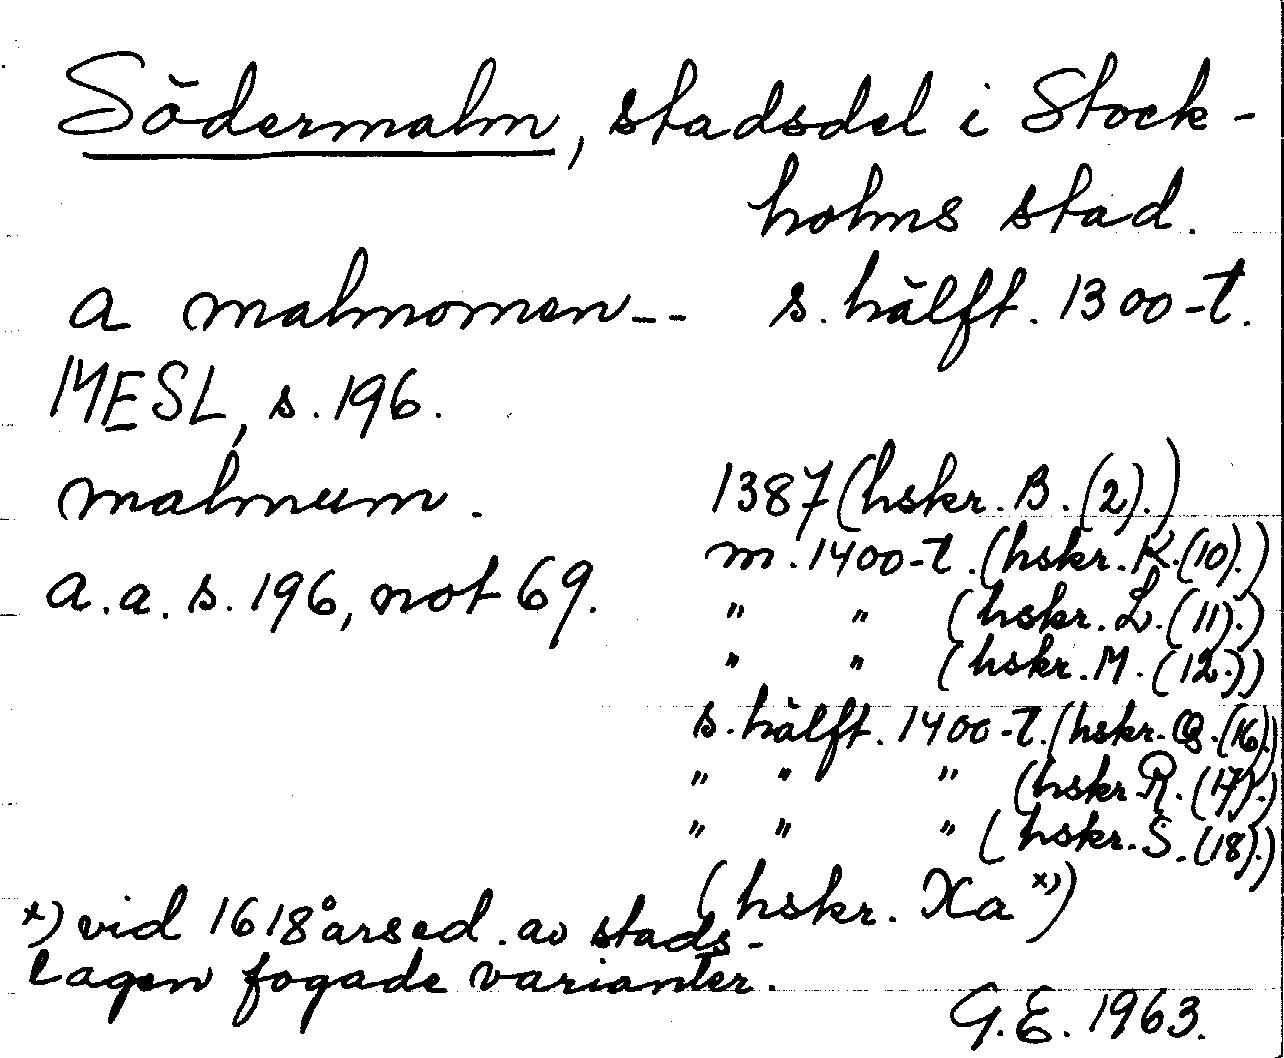 Södermalm, stadsdel i Stock-
holms stad.
a malmomen-- s. hälft. 1300-t.
MESL, s. 196.
malmum. 1387 (hskr. B. (2).)
m. 1400-t. (hskr. K. (10).)
a. a. s. 196, not 69. " " (hskr. L. (11).)
" " (hskr. M. (12.))
s. hälft. 1400-t. (hskr. Q. (16).)
" " " (hskr. R. (17).)
" " " (hskr. S. (18).)
(hskr. Xa x))
x) vid 1618 årsed. av stads-
lagen fogade varianter.
G.E. 1963.